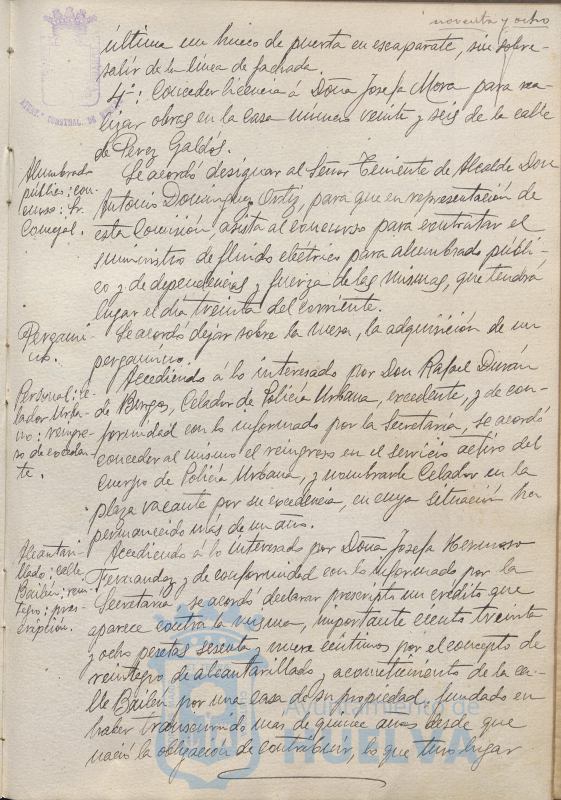 noventa y ocho
última un hueco de puerta en escaparate, sin sobre-
salir de la linea de fachada.
4º: Conceder licencia á Doña Josefa Mora para rea-
lizar obras en la casa número veinte y seis de la calle
de Perez Galdós.
Alumbrado
publico: con-
curso: Sr.
Concejal.
Se acordó designar al Señor Teniente de Alcalde Don
Antonio Dominguez Ortiz, para que en representación de
esta Comisión, asista al concurso para contratar el
suministro de fluido eléctrico para alumbrado públi-
co y de dependencias y fuerza de las mismas, que tendrá
lugar el dia treinta del corriente.
Pergami-
no.
Se acordó dejar sobre la mesa, la adquisición de un
pergamino.
Personal: Ce-
lador Urba-
no: reingre-
so de exceden-
te.
Accediendo á lo interesado por Don Rafael Durán
de Burgos, Celador de Policía Urbana, excedente, y de con-
formidad con lo informado por la Secretaría, se acordó
conceder al mismo el reingreso en el servicio activo del
cuerpo de Policía Urbana, y nombrarle Celador en la
plaza vacante por su excedencia, en cuya situación ha
permanecido mas de un año.
Alcantari-
llado: calle
Bailén: rein-
tegro: pres-
cripción.
Accediendo á lo interesado por Doña Josefa Hermoso
Fernandez y de conformidad con lo informado por la
Secretaría, se acordó declarar prescripto un crédito que
aparece contra la misma, importante ciento treinta
y ocho pesetas sesenta y nueve céntimos por el concepto de
reintegro de alcantarillado y acometimiento de la ca-
lle Bailén por una casa de su propiedad, fundado en
haber transcurrido mas de quince años desde que
nació la obligación de contribuir, lo que tuvo lugar
Ayuntamiento de
HUELVA